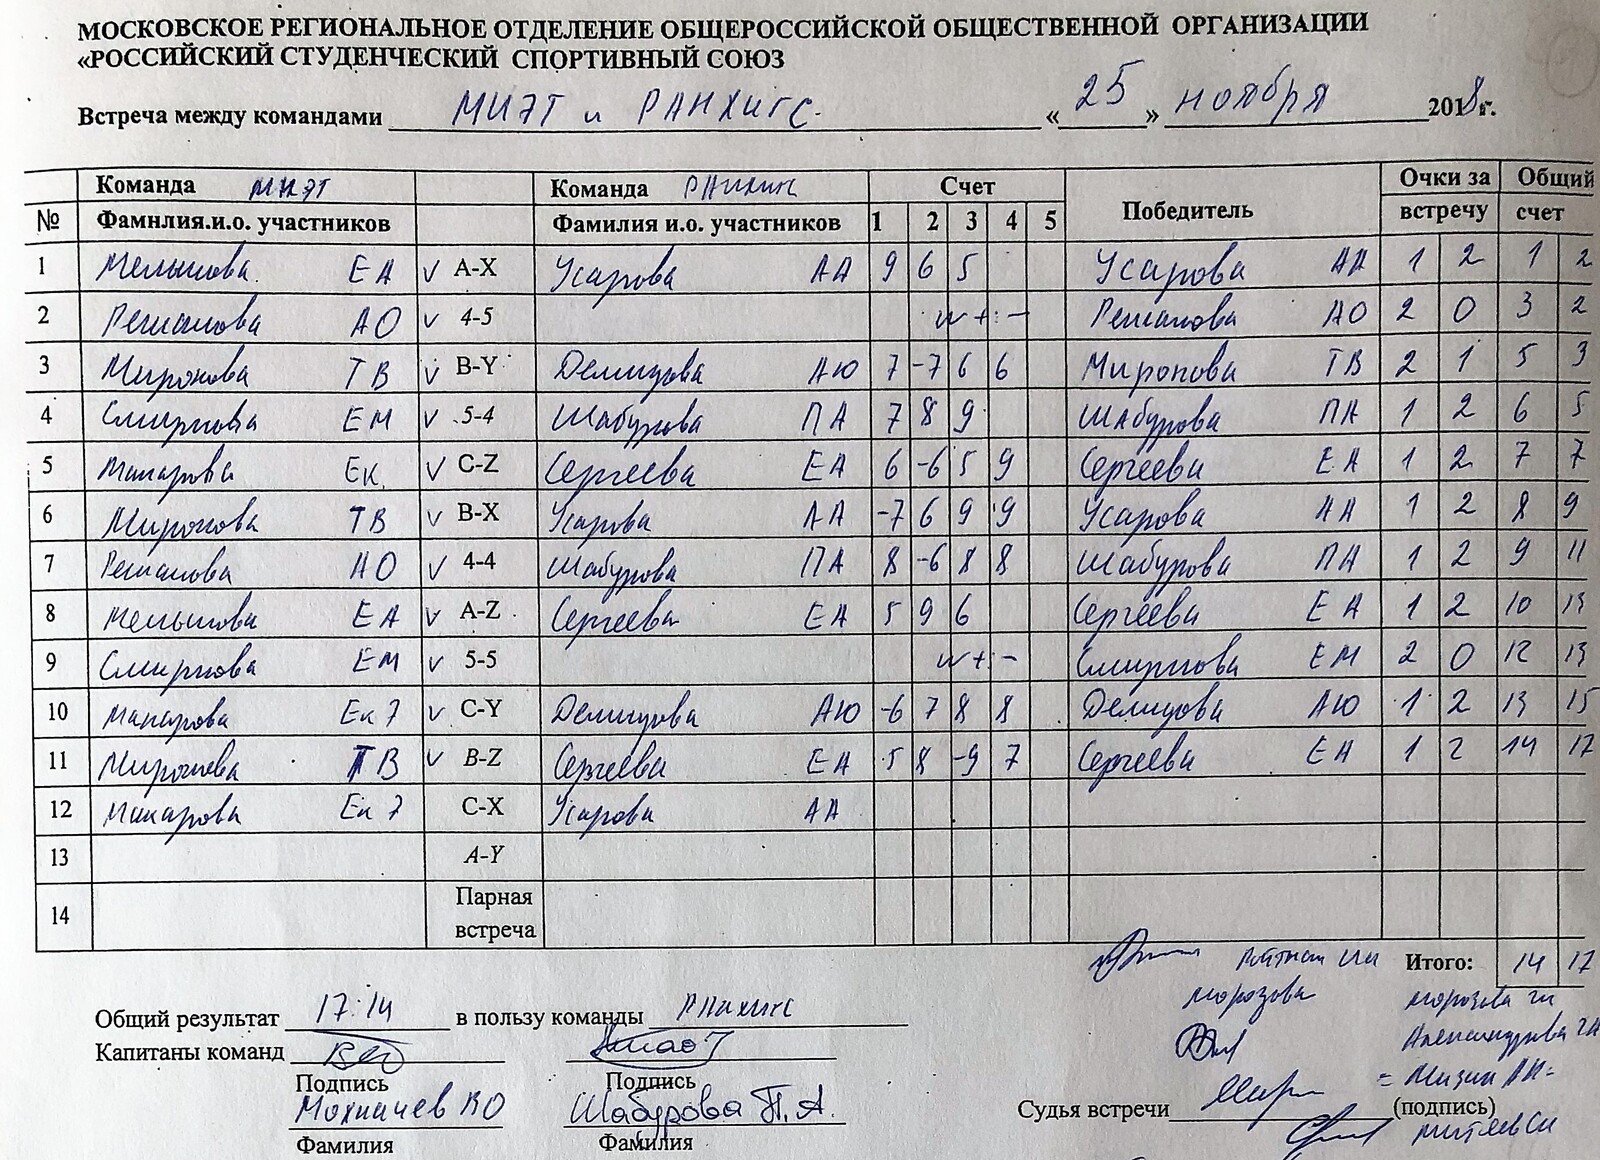 МОСКОВСКОЕ РЕГИОНАЛЬНОЕ ОТДЕЛЕНИЕ ОБЩЕРОССИЙСКОЙ ОБЩЕСТВЕННОЙ ОРГАНИЗАЦИИ
«РОССИЙСКИЙ СТУДЕНЧЕСКИЙ СПОРТИВНЫЙ СОЮЗ
Встреча между командами МИЭТ и РАНХиГС. «25» ноября 2018г.
Команда МИЭТ Команда РАНХиГС Счет Победитель Очки за Общий
№ Фамнлия.и.о. участников Фамилия и.о. участников 1 2 3 4 5 встречу счет
1 ЕА v A-X Усарова АА 9 6 5 Усарова АА 1 2 1 2
2 АО v 4-5 w + : – АО 2 0 3 2
3 Миронова ТВ v B-Y Демидова АЮ 7 -7 6 6 Миронова ТВ 2 1 5 3
4 Смирнова ЕМ v 5-4 Шабурова ПА 7 8 9 Шабурова ПА 1 2 6 5
5 Макарова Ек. v C-Z Сергеева ЕА 6 -6 5 9 Сергеева ЕА 1 2 7 7
6 Миронова ТВ v B-X Усарова АА -7 6 9 9 Усарова АА 1 2 8 9
7 АО v 4-4 Шабурова ПА 8 -6 8 8 Шабурова ПА 1 2 9 11
8 ЕА v A-Z Сергеева ЕА 5 9 6 Сергеева ЕА 1 2 10 13
9 Смирнова ЕМ v 5-5 w + : – Смирнова ЕМ 2 0 12 13
10 Макарова Ек v C-Y Демидова АЮ -6 7 8 8 Демидова АЮ 1 2 13 15
11 Миронова ТВ v B-Z Сергеева ЕА 5 8 -9 7 Сергеева ЕА 1 2 14 17
12 Макарова Ек C-X Усарова АА
13 A-Y
14 Парная
встреча
Итого: 14 17
Морозова Морозова
Общий результат 17:14 в пользу команды РАНХиГС
Капитаны команд
Александрова
Подпись Подпись
Мохначев ВО Шабурова П.А.
Судья встречи (подпись)
Фамилия Фамилия